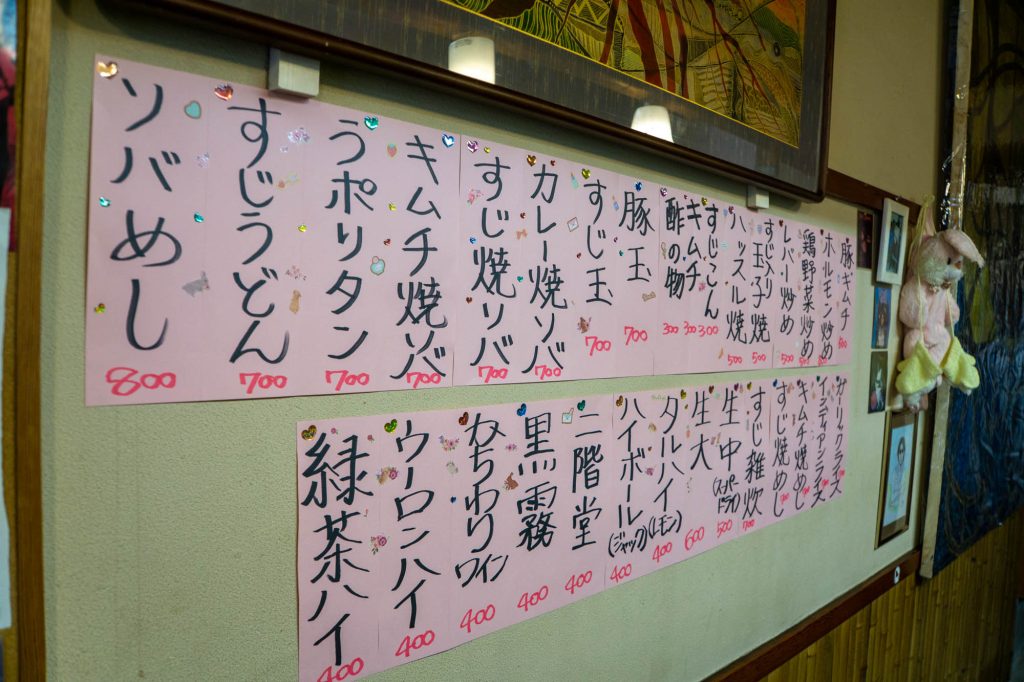 豚キムチ
ホルモン炒め
鶏野菜炒め 500
レバー炒め 500
すじ入り玉子焼 500
ハッスル焼 500
すじこん 300
キムチ 300
酢の物 300
豚玉 700
すじ玉 700
カレー焼ソバ 700
すじ焼ソバ 700
キムチ焼ソバ 700
うポリタン 700
すじうどん 700
ソバめし 800
ガーリックライス
インディアンライス
キムチ焼めし
すじ焼めし
すじ雑炊 700
生中(スーパードライ) 500
生大 600
タルハイ(レモン) 400
ハイボール(ジャック) 400
二階堂 400
黒霧 400
かちわりワイン 400
ウーロンハイ 400
緑茶ハイ 400